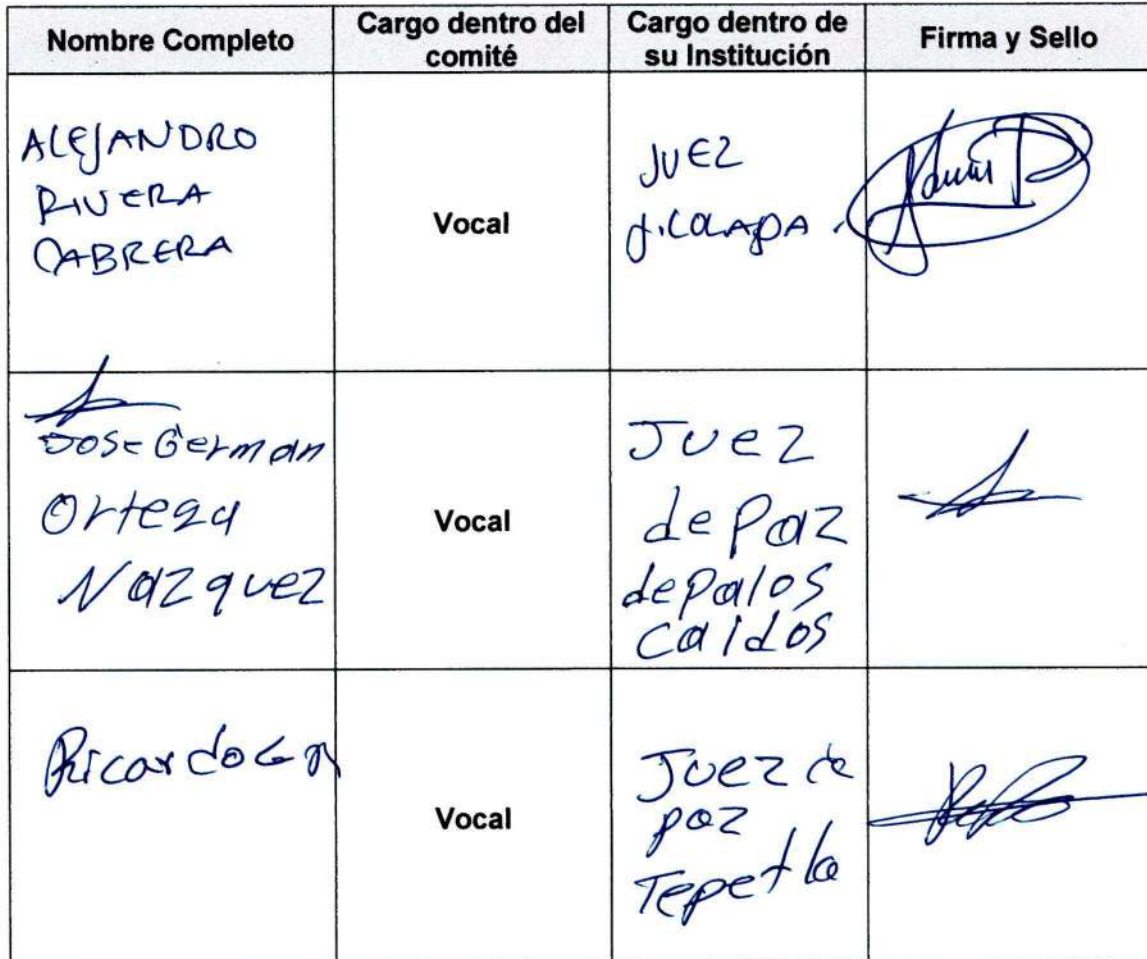 Nombre Completo
Cargo dentro del
comité
Cargo dentro de
su Institución
Firma y Sello
ALEJANDRO
RIVERA
CABRERA
Vocal
JUEZ
Jicolapa.
Jose German
Ortega
Vazquez
Vocal
Juez
de Paz
de Palos
Caidos
Ricardo G M
Vocal
Juez de
paz
Tepetla